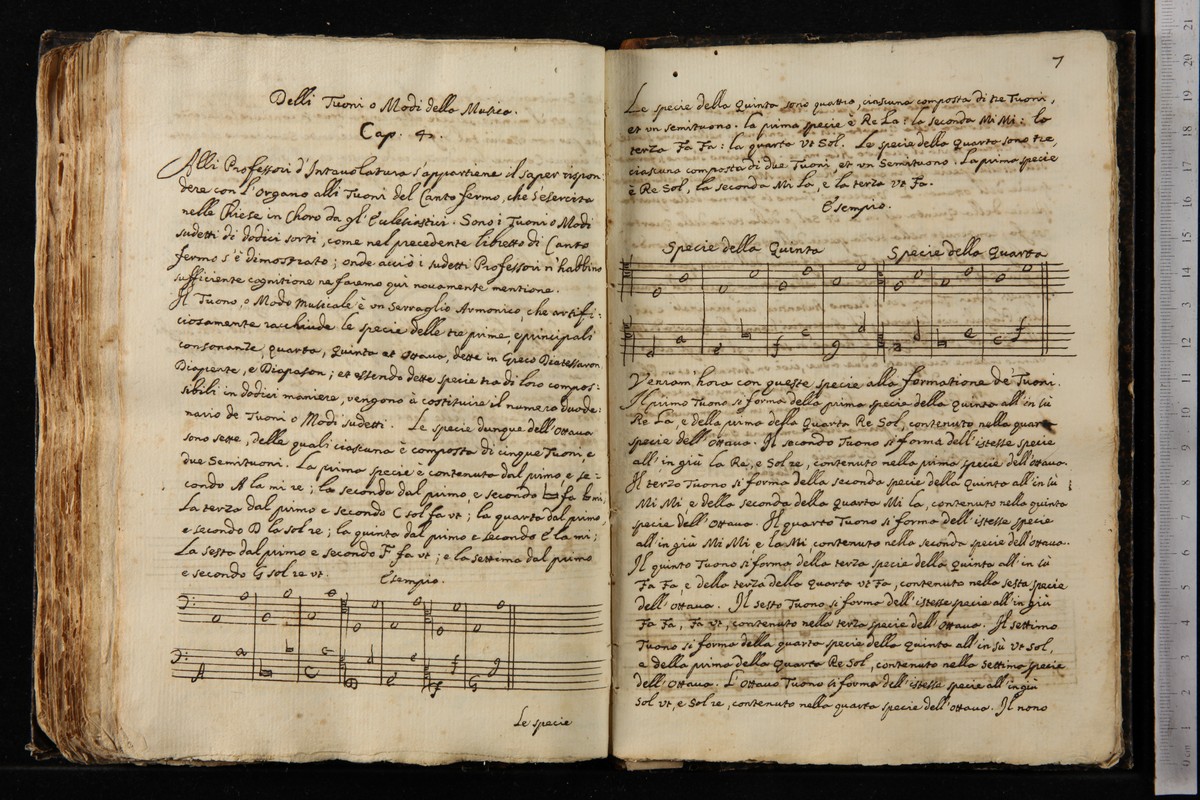 Delli Tuoni o Modi della Musica.
Cap. 4.
Alli Professori d'Intavolatura s'appartiene il saper rispon:
dere con l'Organo alli Tuoni del Canto fermo, che s'esercita
nelle Chiese in Choro da gl'Eclesiastici. Sono i Tuoni o Modi
sudetti di dodici sorti, come nel precedente libretto di Canto
fermo s'è dimostrato; onde acciò i sudetti Professori n'habbino
sufficiente cognitione ne faremo qui novamente mentione.
Il Tuono, o Modo Musicale è un Serraglio Armonico, che artifi:
ciosamente racchiude le specie delle tre prime, e principali
consonanze, quarta, Quinta et Ottava, dette in Greco Diatessaron
Diapente, e Diapason; et essendo dette specie tra di loro compos:
sibili in dodici maniere, vengono à costituire il numero duode:
nario de Tuoni o Modi sudetti. Le specie dunque dell'Ottava
sono sette, delle quali ciascuna è composta di cinque Tuoni, e
due Semituoni. La prima specie è contenuta dal primo e se:
condo A la mi re; la seconda dal primo e secondo ♮ fa b mi,
La terza dal primo e secondo C sol fa vt; la quarta dal primo,
e secondo D la sol re; la quinta dal primo e secondo E la mi;
La sesta dal primo e secondo F fa vt; e la settima dal primo
e secondo G sol re vt. Esempio.
A a ♮ ♮ C c D d E e F f G g
Le specie
7
Le specie della Quinta sono quattro, ciascuna composta di tre Tuoni,
et vn semituono. la prima specie è Re La: la seconda Mi Mi: la
terza Fa Fa: la quarta Vt Sol. Le specie della Quarta sono tre,
ciascuna composta di due Tuoni et vn Semituono. La prima specie
è Re Sol, la seconda Mi La, e la terza Vt Fa.
Esempio.
Specie della Quinta Specie della Quarta
d a e ♮ f c g d a d ♮ e c f
Veniam'hora con queste specie alla formatione de' Tuoni.
Il primo Tuono si forma della prima specie della Quinta all'in sù
Re La, e della prima della Quarta Re Sol, contenuto nella quarta
specie dell'Ottava. Il secondo Tuono si forma dell'istesse specie
all'in giù La Re, e Sol re, contenuto nella prima specie dell'Ottava.
Il terzo Tuono si forma della seconda specie della Quinta all'in sù
Mi Mi e della seconda della Quarta Mi la, contenuto nella quinta
specie dell'Ottava. Il quarto Tuono si forma dell'istesse specie
all'in giù Mi Mi, e la Mi, contenuto nella seconda specie dell'Ottava.
Il quinto Tuono si forma della terza specie della Quinta all'in sù
Fa Fa, e della terza della Quarta vt Fa, contenuto nella sesta specie
dell'Ottava. Il sesto Tuono si forma dell'istesse specie all'in giù
Fa Fa, Fa vt, contenuto nella terza specie dell'Ottava. Il settimo
Tuono si forma della quarta specie della Quinta all'in sù Vt Sol,
e della prima della Quarta Re Sol, contenuto nella settima specie
dell'Ottava. L'Ottavo Tuono si forma dell'istesse specie all'in giù
Sol vt, e Sol re, contenuto nella quarta specie dell'Ottava. Il nono